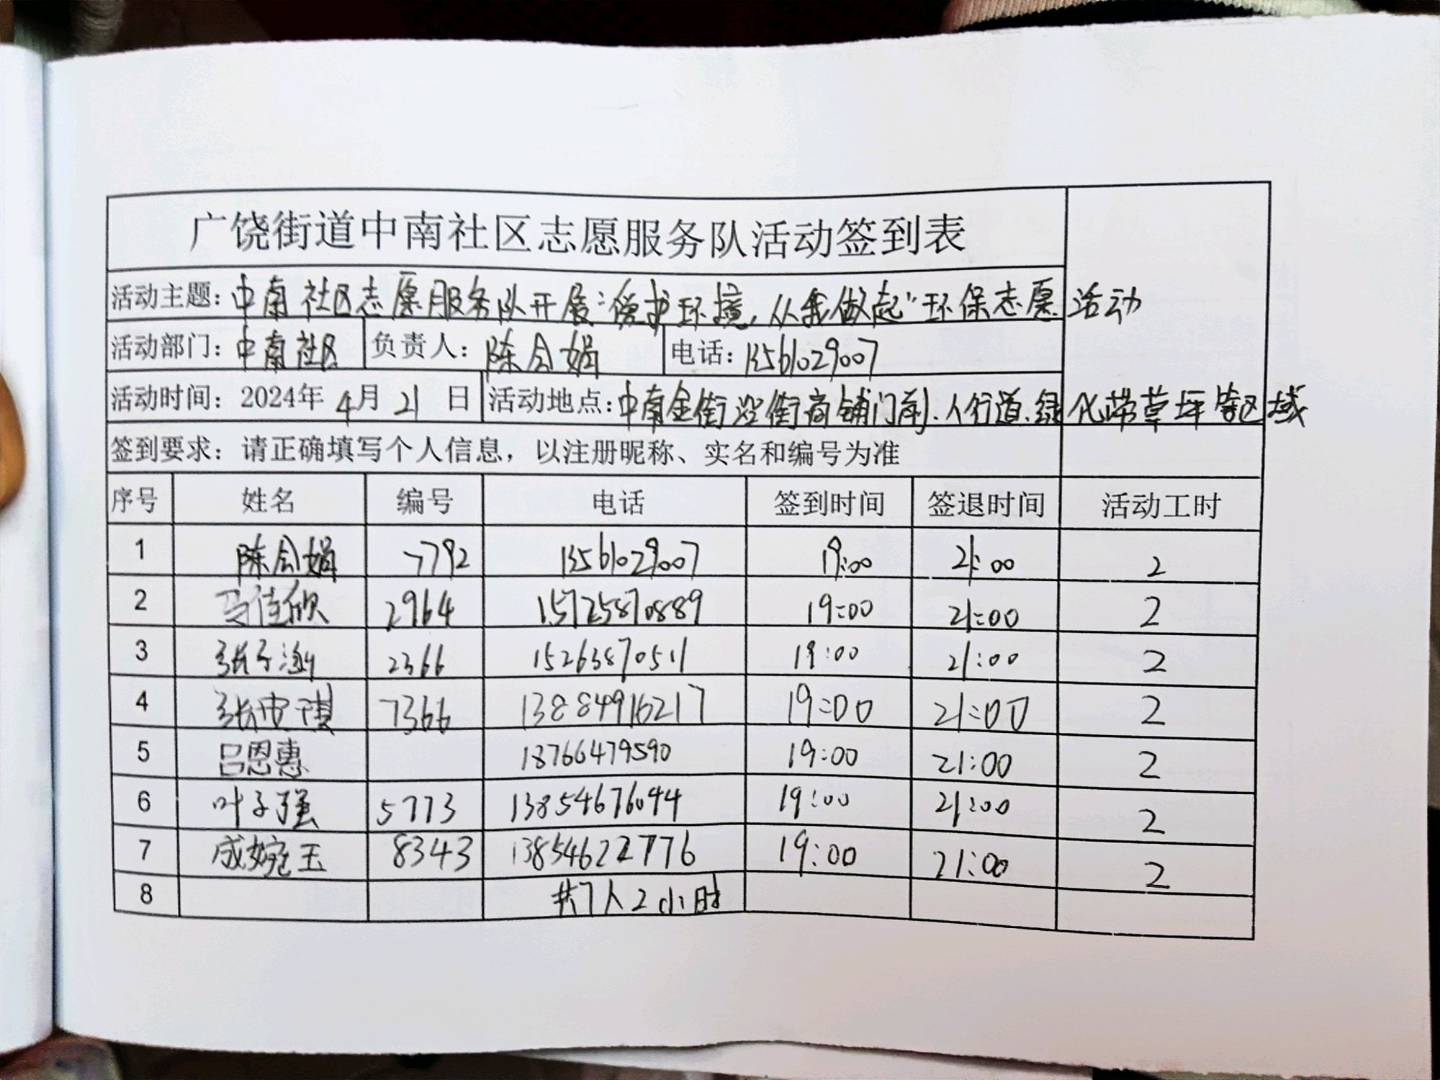 广饶街道中南社区志愿服务队活动签到表
活动主题：中南社区志愿服务队开展“保护环境，从我做起”环保志愿活动
活动部门：中南社区 负责人：陈会娟 电话：13561029007
活动时间：2024年4月21日 活动地点：中南金街沿街商铺门前、人行道、绿化带草坪等区域
签到要求：请正确填写个人信息，以注册昵称、实名和编号为准
序号 姓名 编号 电话 签到时间 签退时间 活动工时
1 陈会娟 7792 13561029007 19:00 21:00 2
2 马佳欣 2964 15725870889 19:00 21:00 2
3 张子 2366 15263870511 19:00 21:00 2
4 张 7366 13884916217 19:00 21:00 2
5 吕恩惠 18766479590 19:00 21:00 2
6 叶子强 5773 13854676044 19:00 21:00 2
7 成婉玉 8343 13854622776 19:00 21:00 2
8 共7人2小时